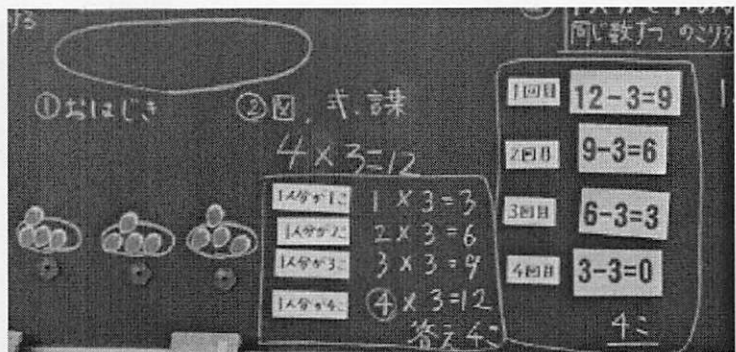 同じ数ずつ のこりを
①おはじき
②図、式、言葉
4×3=12
1人分が1こ 1×3=3
1人分が2こ 2×3=6
1人分が3こ 3×3=9
1人分が4こ ④×3=12
答え4こ
1回目 12-3=9
2回目 9-3=6
3回目 6-3=3
4回目 3-3=0
4こ